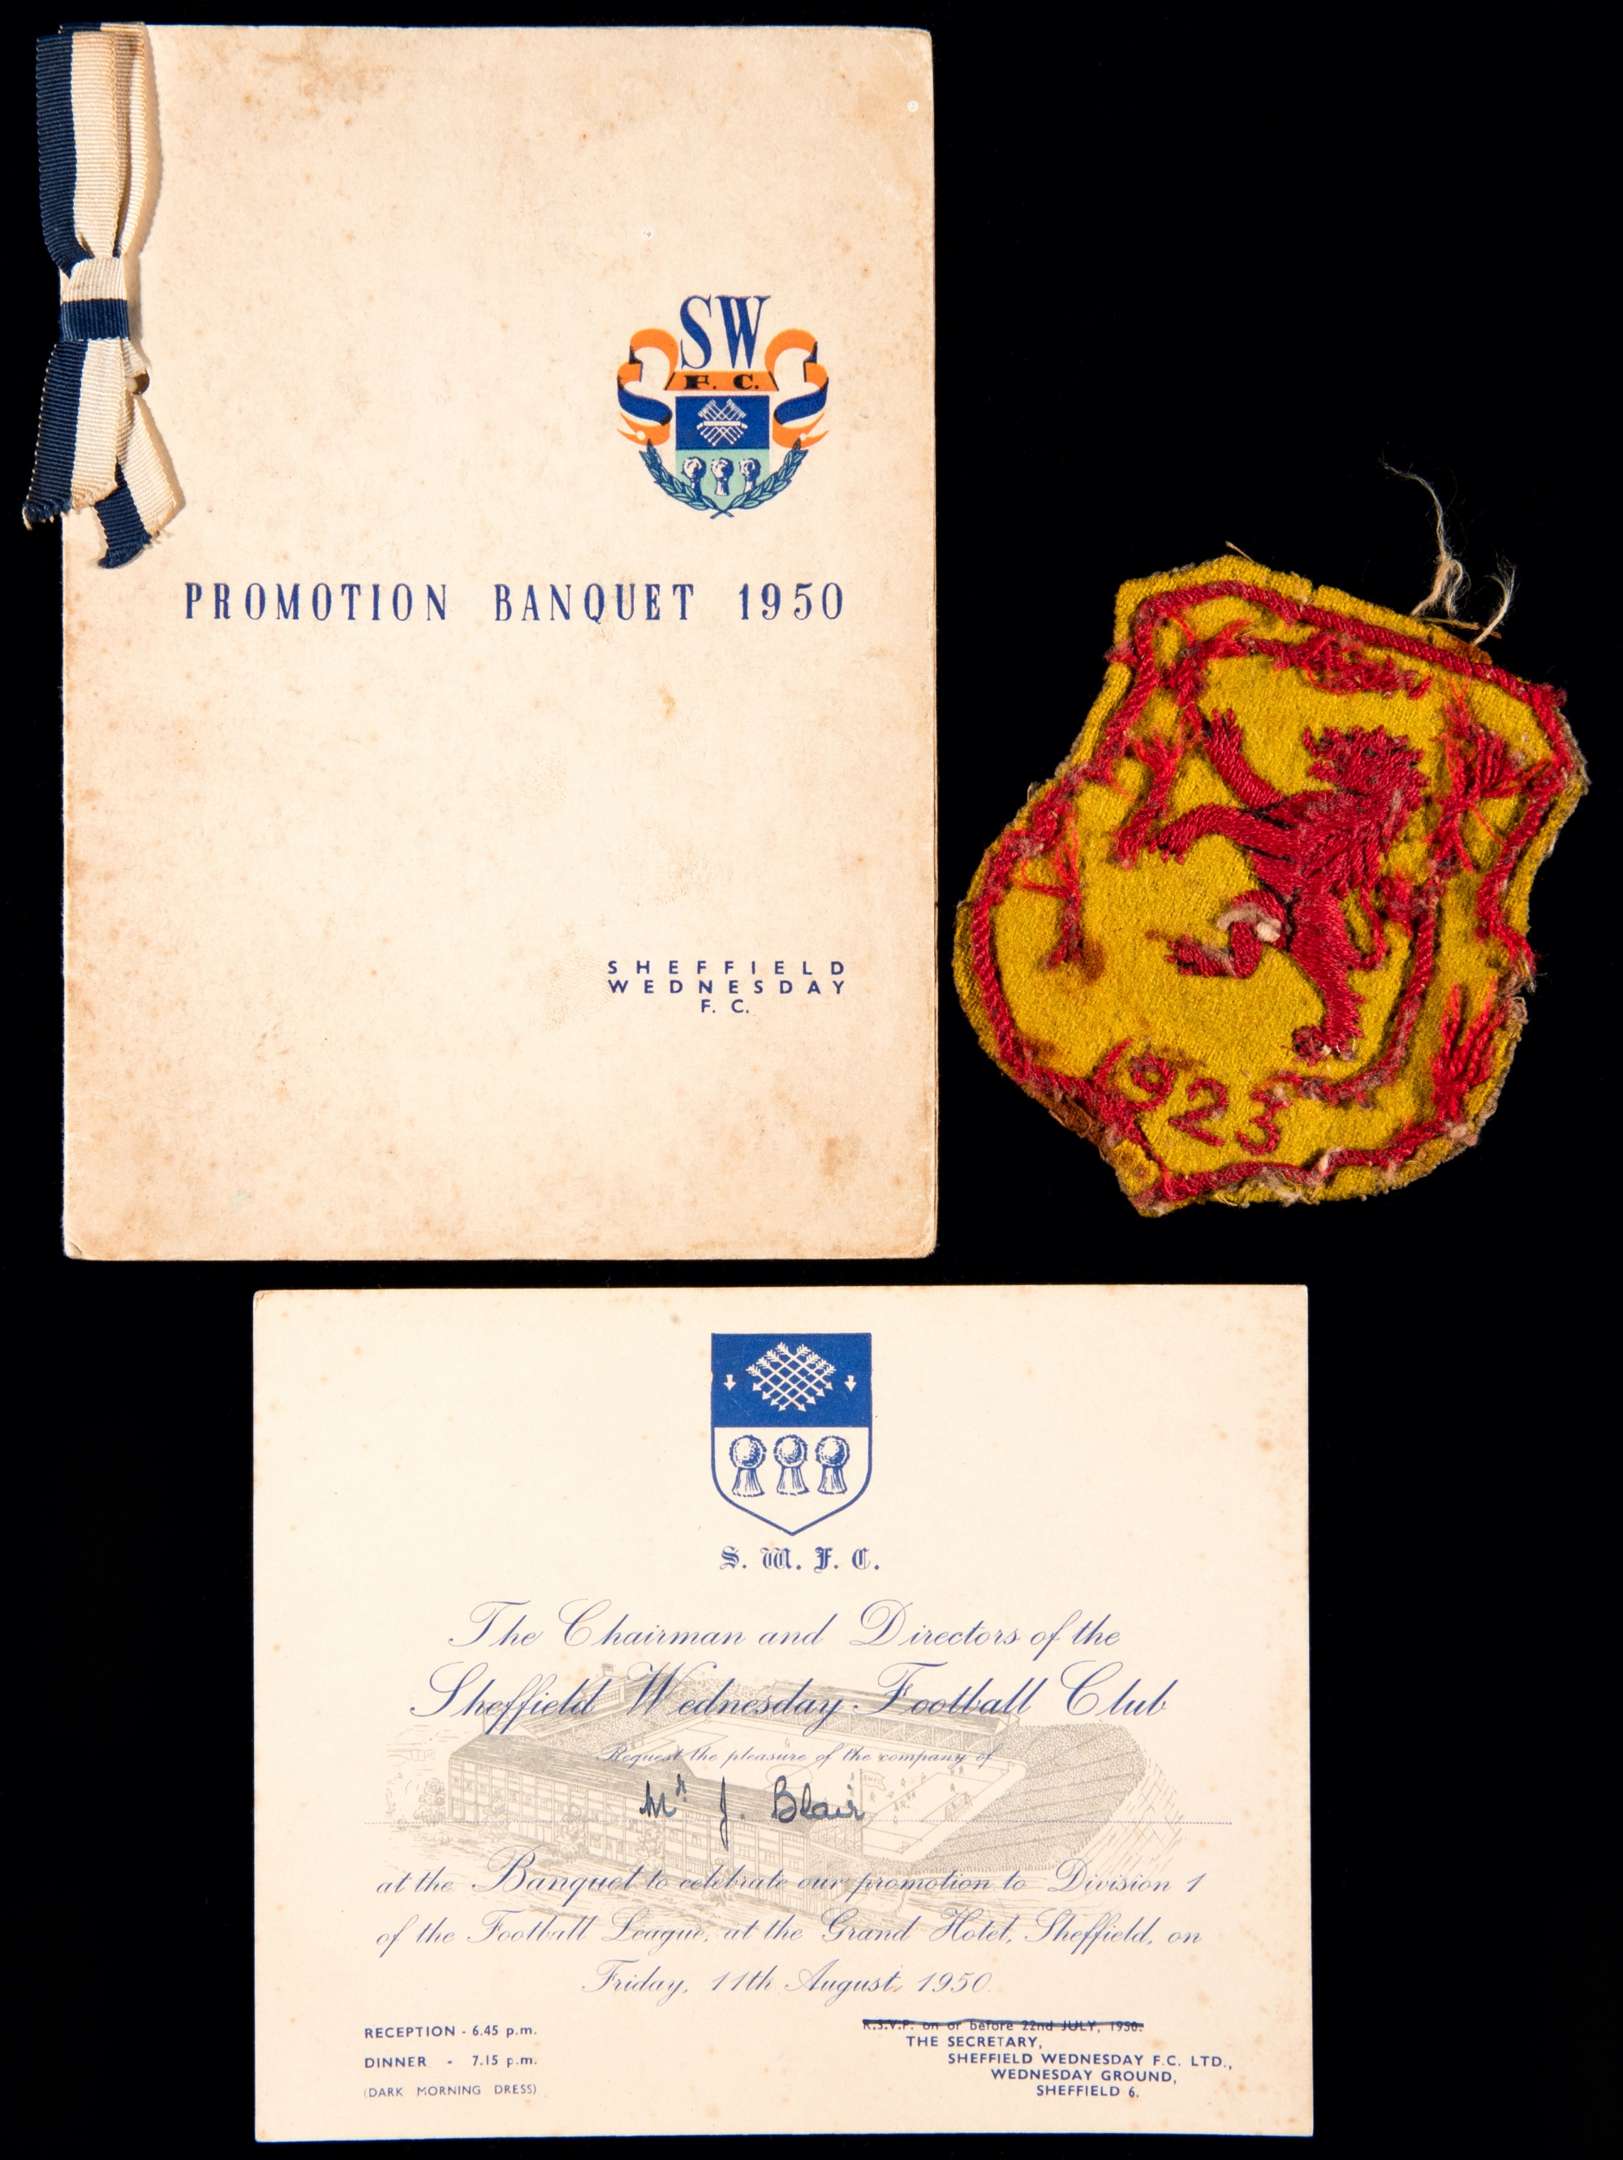 SW
F. C.
PROMOTION BANQUET 1950
SHEFFIELD
WEDNESDAY
F. C.
1923
S. W. F. C.
The Chairman and Directors of the
Sheffield Wednesday Football Club
Request the pleasure of the company of
Mr. J. Blair
at the Banquet to celebrate our promotion to Division 1
of the Football League, at the Grand Hotel, Sheffield, on
Friday, 11th August, 1950.
RECEPTION - 6.45 p.m.
DINNER - 7.15 p.m.
(DARK MORNING DRESS)
R.S.V.P. on or before 22nd JULY, 1950.
THE SECRETARY,
SHEFFIELD WEDNESDAY F.C. LTD.,
WEDNESDAY GROUND,
SHEFFIELD 6.